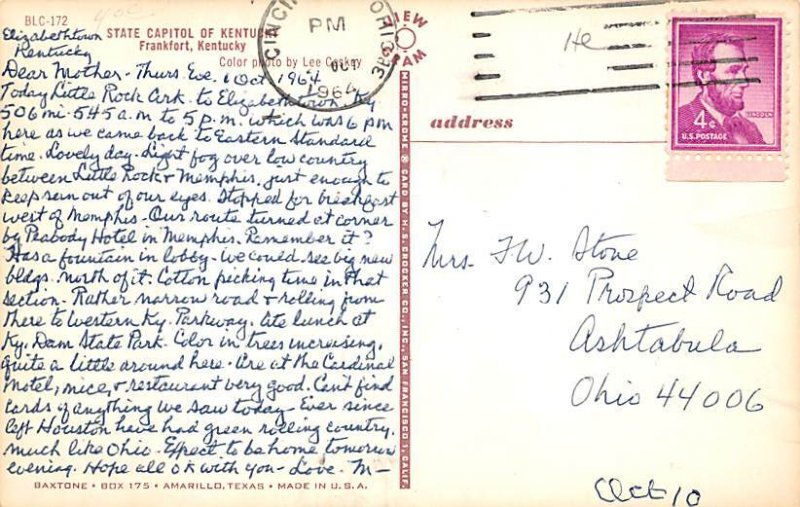 BLC-172
STATE CAPITOL OF KENTUCKY
Frankfort, Kentucky
Color photo by Lee Coskey
Elizabethtown
Kentucky
Dear Mother - Thurs Eve. 1 Oct 1964
Today Little Rock Ark. to Elizabethtown, Ky
506 mi. 545 a.m to 5 p.m. which was 6 pm
here as we came back to Eastern Standard
time. Lovely day. Light fog over low country
between Little Rock + Memphis, just enough to
keep sun out of our eyes. Stopped for breakfast
west of Memphis - Our route turned at corner
by Peabody Hotel in Memphis. Remember it?
Has a fountain in lobby - we could see big new
bldgs. north of it. Cotton picking time in that
section - Rather narrow road & rolling from
there to Western Ky. Parkway. Late lunch at
Ky. Dam State Park. Color in trees increasing,
quite a little around here - Are at the Cardinal
Motel, nice, & restaurant very good. Can't find
cards of anything we saw today - Ever since
left Houston have had green rolling country,
much like Ohio. Expect to be home tomorrow
evening. Hope all ok with you - Love - M -
BAXTONE • BOX 175 • AMARILLO, TEXAS • MADE IN U.S.A.
MIRRO-KROME ® CARD BY H. S. CROCKER CO., INC., SAN FRANCISCO 1, CALIF.
CINCINNATI OHIO
PM
OCT
1964
He
4¢
LINCOLN
U.S. POSTAGE
address
Mrs. F.W. Stone
931 Prospect Road
Ashtabula
Ohio 44006
Oct 10